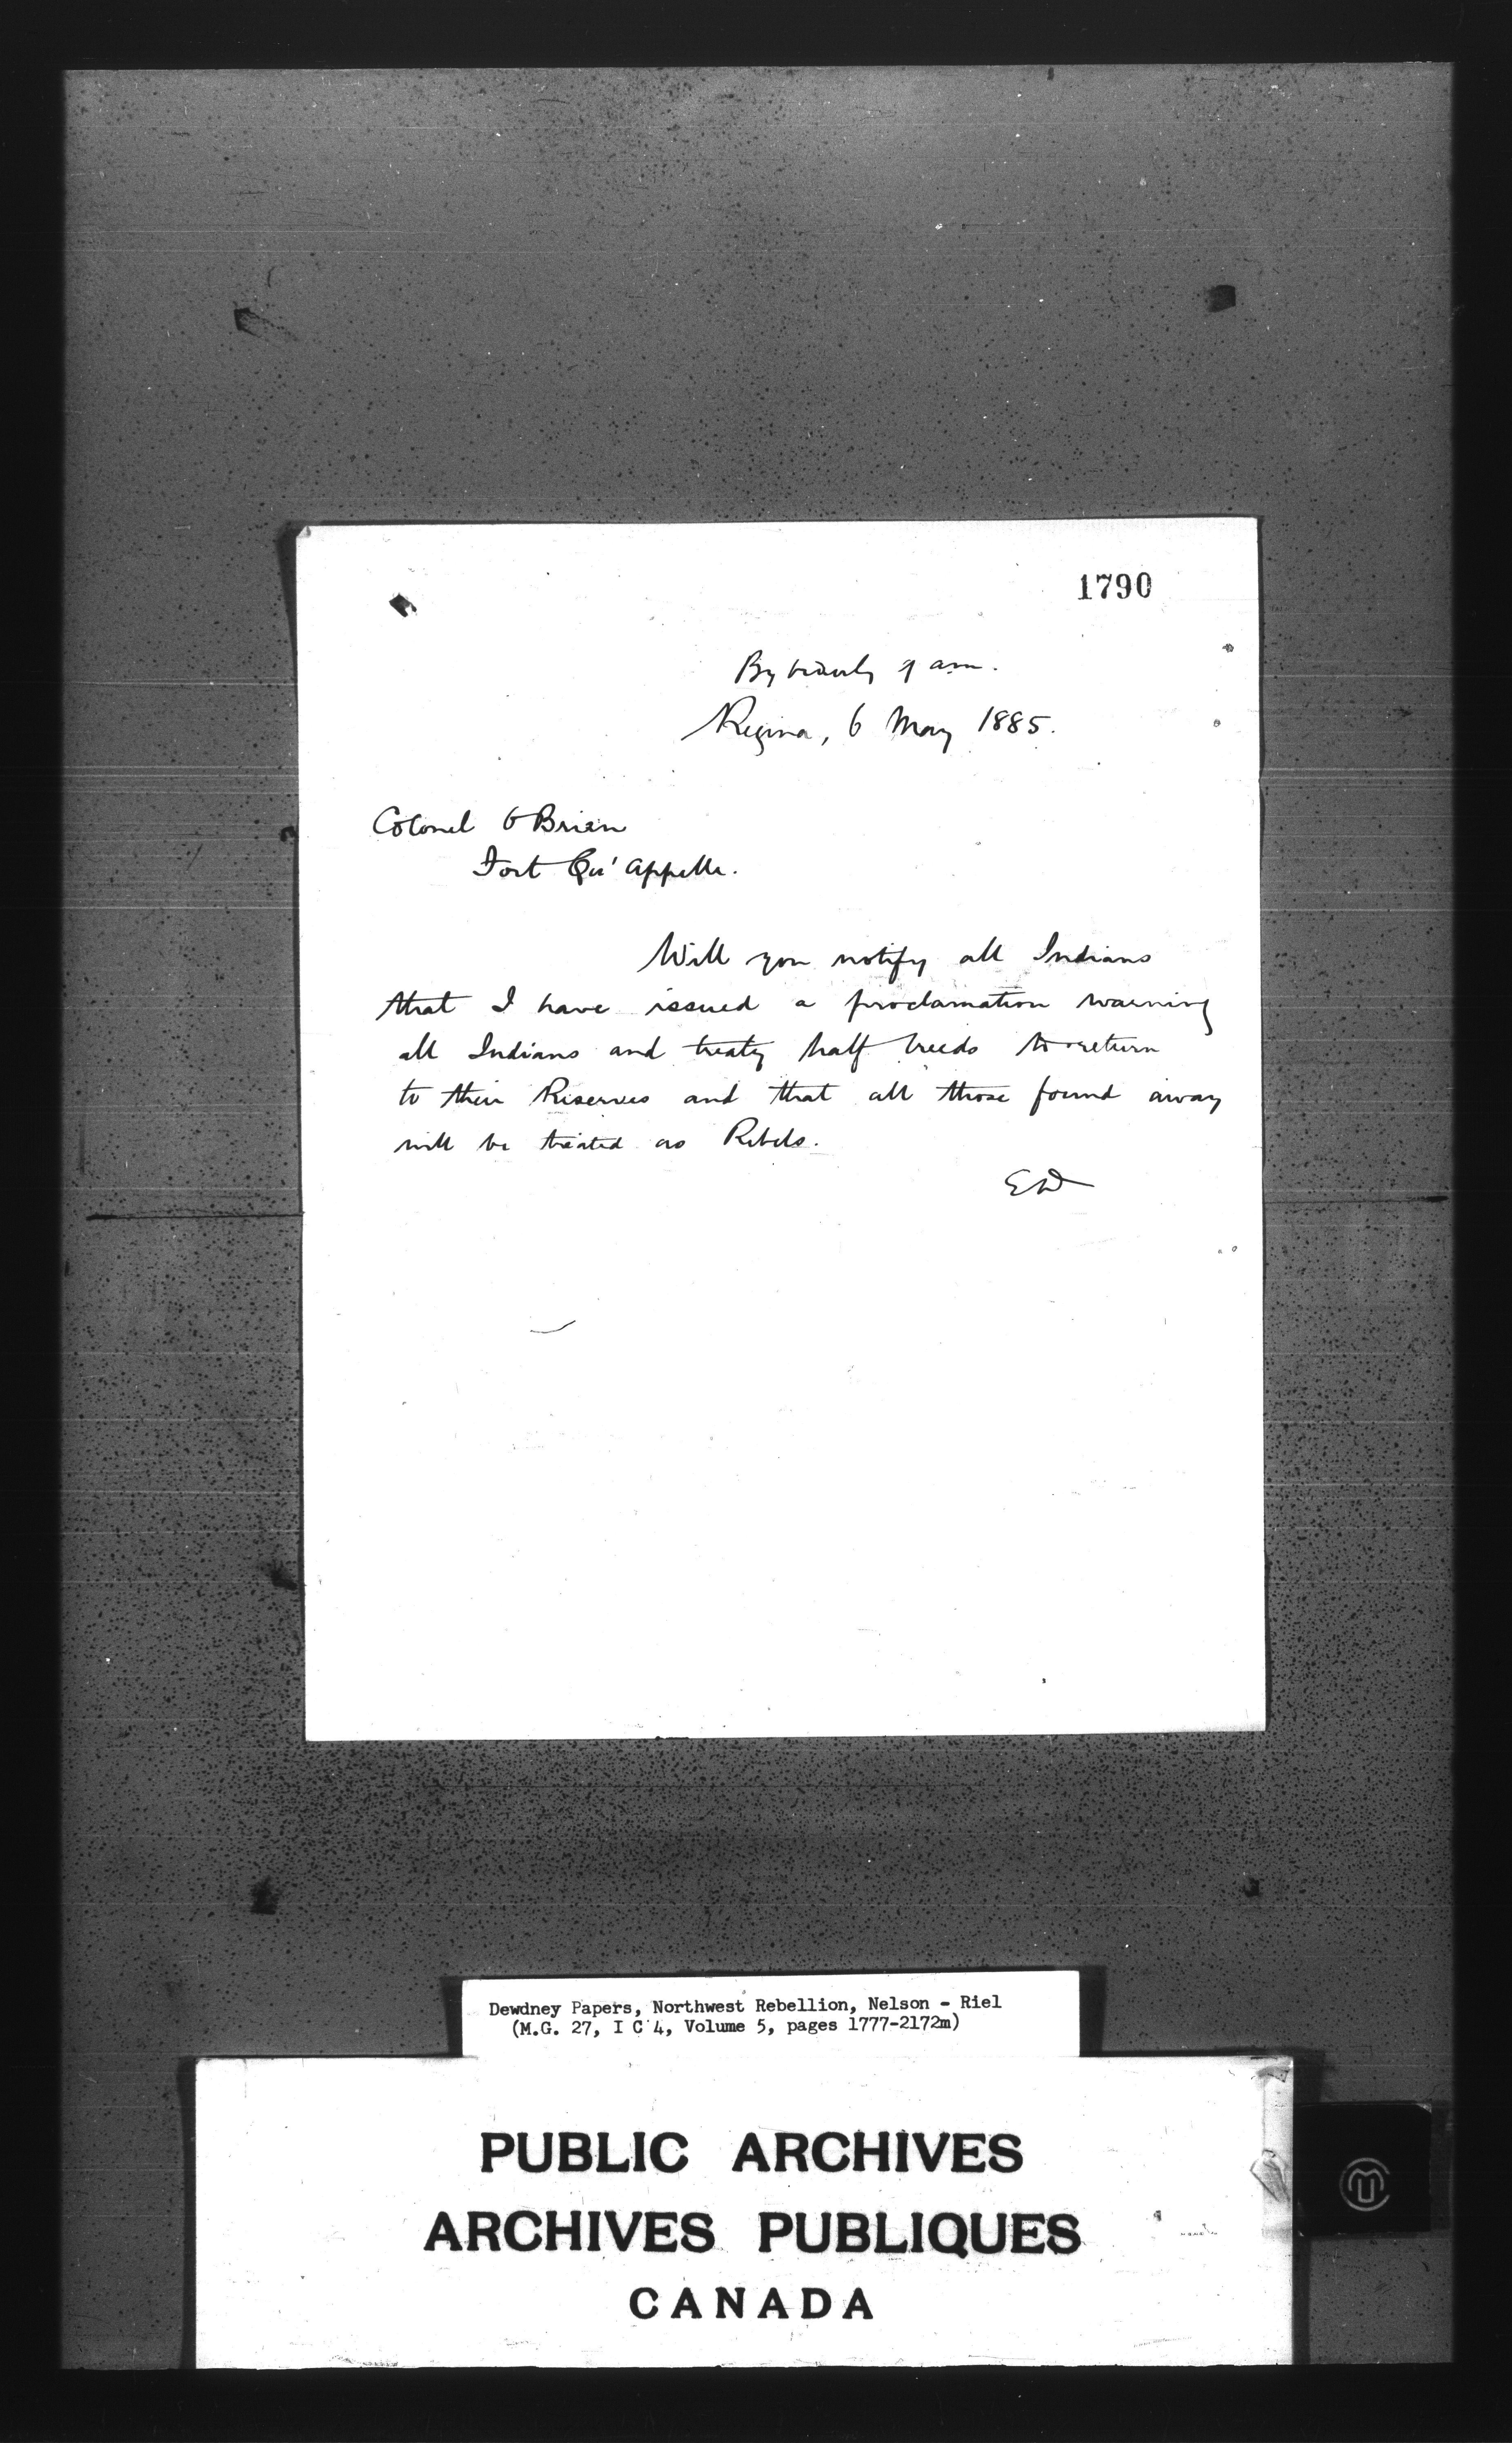 1790
By 9 am.
Regina, 6 May 1885.
Colonel O'Brien
Fort Qu'Appelle.
Will you notify all Indians
that I have issued a proclamation warning
all Indians and treaty half breeds to return
to their Reserves and that all those found away
will be treated as Rebels.
ED
Dewdney Papers, Northwest Rebellion, Nelson - Riel
(M.G. 27, I C 4, Volume 5, pages 1777-2172m)
PUBLIC ARCHIVES
ARCHIVES PUBLIQUES
CANADA